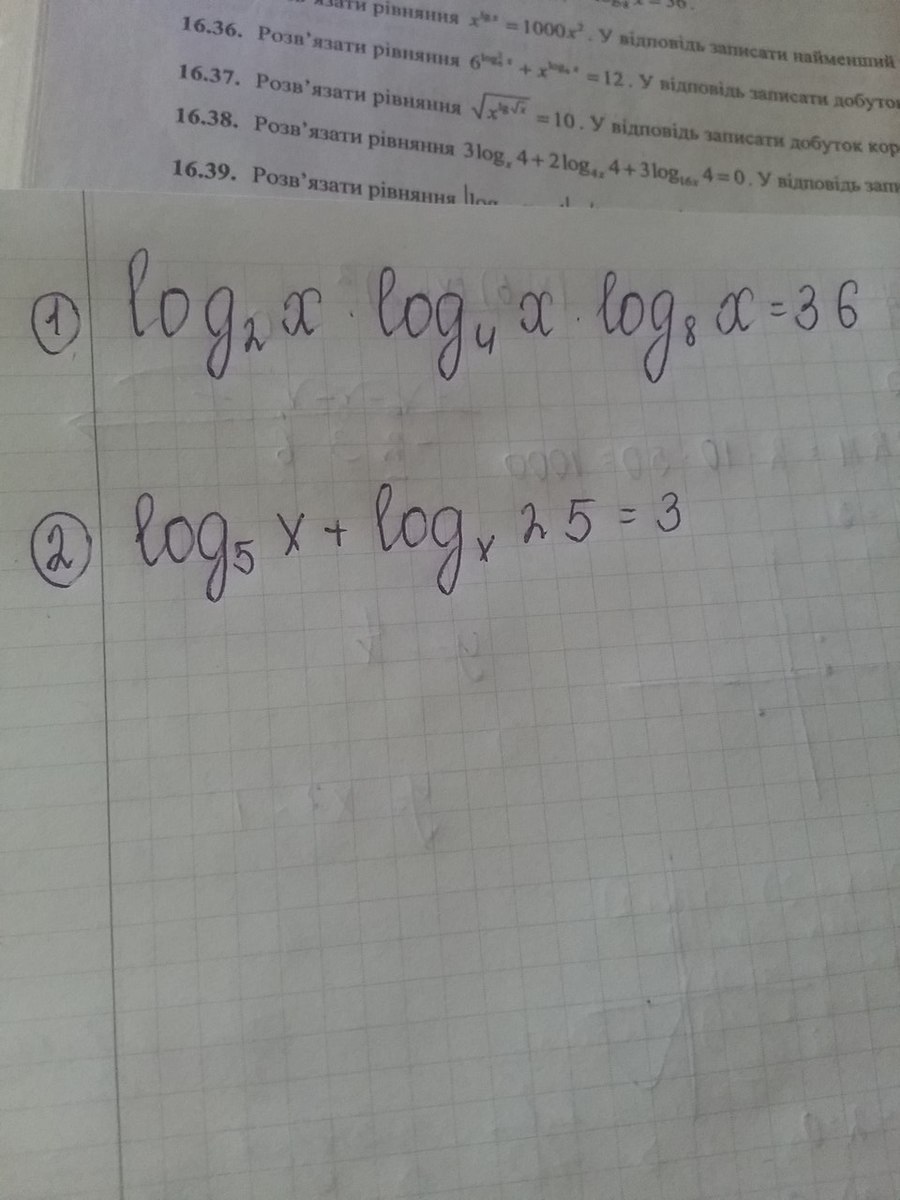 рівняння x^{lg x} = 1000x². У відповідь записати найменший
16.36. Розв’язати рівняння 6^{log₆² x} + x^{log₆ x} = 12. У відповідь записати добуток
16.37. Розв’язати рівняння √(x^{lg √x}) = 10. У відповідь записати добуток
16.38. Розв’язати рівняння 3log_x 4 + 2log_{4x} 4 + 3log_{16x} 4 = 0. У відповідь
16.39. Розв’язати рівняння
① log₂ x · log₄ x · log₈ x = 36
② log₅ x + logₓ 25 = 3